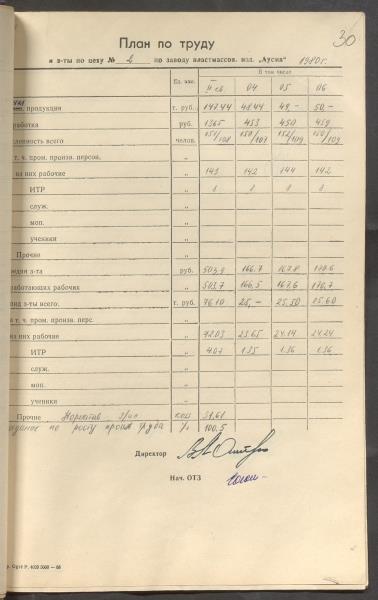 30
План по труду
и з-ты по цеху № 2 по заводу пластмассов. изд. „Аусма" 1980 г.
Ед. изм. II кв В том числе
04 05 06
продукция т. руб. 147.44 48.44 49,- 50,-
работка руб. 1365 453 450 459
ленность всего человек. 151/108 150/107 152/109 150/109
т. ч. пром. произв. персон. „
из них рабочие „ 143 142 144 142
ИТР „ 8 8 8 8
служ. „
моп. „
ученики „
Прочие „
едняя з-та руб. 503,9 166.7 167.8
работающих рабочих „ 503.7 166.5 167.6 170,7
онд з-ты всего. т. руб. 76.10 25,- 25.50 25.60
т. ч. пром. произв. перс. „
из них рабочие „ 72.03 23.65 24.14 24.24
ИТР „ 4.07 1.35 1.36 1.36
служ. „
моп. „
ученики „
Прочие Норматив з/пл коп 51,61
задание по росту произв труда % 100.5
Директор
Нач. ОТЗ